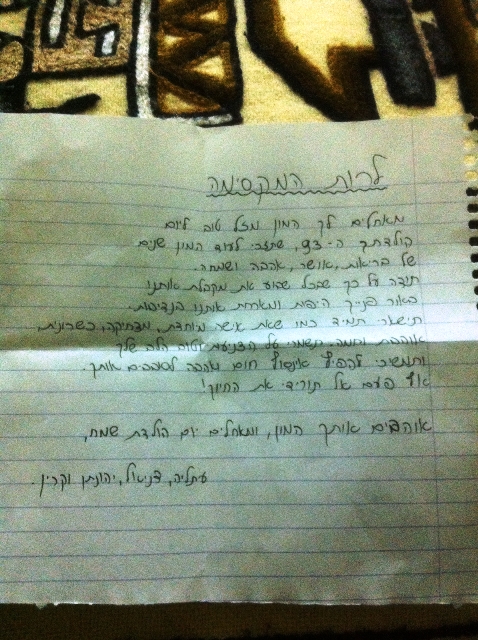 לרות המקסימה
מאחלים לך המון מזל טוב ליום
הולדתך ה-93, שתזכי לעוד המון שנים
של בריאות, אושר, אהבה ושמחה.
תודה על כך שבכל שבוע את מקבלת אותנו
במאור פנייך היפות ומארחת אותנו בנדיבות.
תישארי תמיד כמו שאת אישה מיוחדת, מצחיקה, כשרונית,
אוהבת וחמה. תשמרי על הצניעות והטוב הלב שלך
ותמשיכי להפיץ אינסוף חום ואהבה לסובבים אותך.
אף פעם אל תורידי את החיוך!
אוהבים אותך המון, ומאחלים יום הולדת שמח,
עתליה, דניאל, יהונתן וקרין.